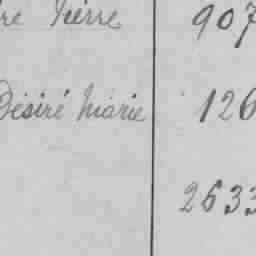 re Pierre 907
Désiré Marie 126
2633